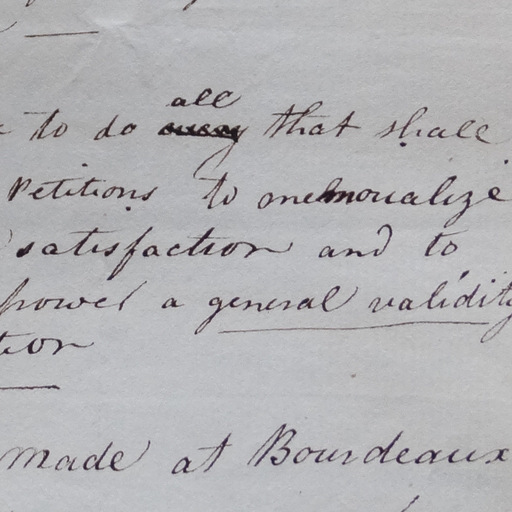 to do all that shall
Petitions to memorialize
satisfaction and to
power a general validity
tion
made at Bourdeaux